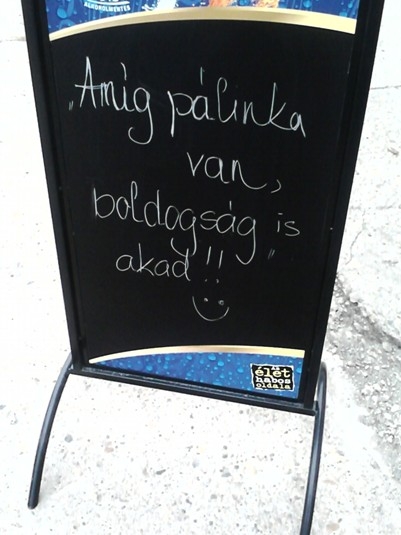 ALKOHOLMENTES
„Amíg pálinka
van,
boldogság is
akad!!"
AZ
élet
habos
oldala